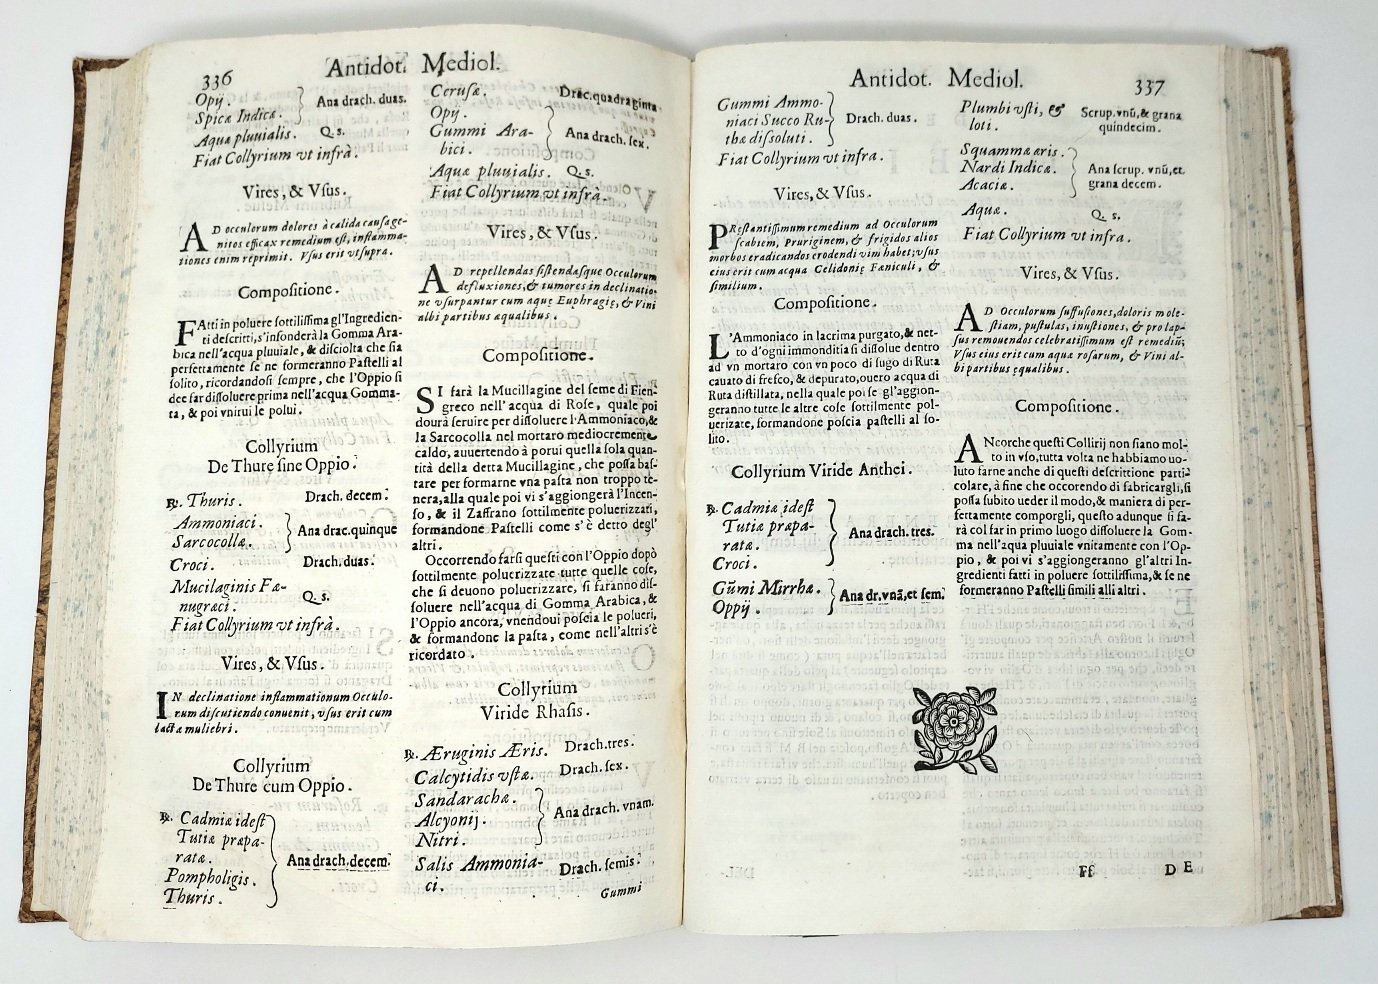 336
Antidot. Mediol.
Opij.
Spicæ Indicæ.
Ana drach. duas.
Aquæ pluuialis. Q. s.
Fiat Collyrium vt infrà.
Vires, & Vſus.
AD occulorum dolores à calida cauſa ge-
nitos efficax remedium eſt, inflamma-
tiones enim reprimit. Vſus erit vtſupra.
Compoſitione.
FAtti in poluere ſottiliſſima gl'Ingredien-
ti deſcritti, s'inſonderà la Gomma Ara-
bica nell'acqua pluuiale, & diſciolta che ſia
perfettamente ſe ne formeranno Paſtelli al
ſolito, ricordandoſi ſempre, che l'Oppio ſi
dee far diſſoluere prima nell'acqua Gomma-
ta, & poi vnirui le polui.
Collyrium
De Thure ſine Oppio.
℞. Thuris. Drach. decem.
Ammoniaci.
Sarcocollæ.
Ana drac. quinque
Croci. Drach. duas.
Mucilaginis Fæ-
nugræci. Q. s.
Fiat Collyrium vt infrà.
Vires, & Vſus.
IN declinatione inflammationum Occulo-
rum diſcutiendo conuenit, vſus erit cum
lactæ muliebri.
Collyrium
De Thure cum Oppio.
℞. Cadmiæ ideſt
Tutiæ præpa-
ratæ.
Pompholigis.
Thuris.
Ana drach. decem.
Ceruſæ. Drac. quadraginta.
Opij.
Gummi Ara-
bici.
Ana drach. ſex.
Aquæ pluuialis. Q. s.
Fiat Collyrium vt infrà.
Vires, & Vſus.
AD repellendas ſiſtendaſque Occulorum
defluxiones, & tumores in declinatio-
ne vſurpantur cum aquę Euphragię, & Vini
albi partibus æqualibus.
Compoſitione.
SI farà la Mucillagine del ſeme di Fien-
greco nell'acqua di Roſe, quale poi
dourà ſeruire per diſſoluere l'Ammoniaco, &
la Sarcocolla nel mortaro mediocremente
caldo, auuertendo à porui quella ſola quan-
tità della detta Mucillagine, che poſſa baſ-
tare per formarne vna paſta non troppo te-
nera, alla quale poi vi s'aggiongerà l'Incen-
ſo, & il Zaffrano ſottilmente poluerizzati,
formandone Paſtelli come s'è detto degl'
altri.
Occorrendo farſi queſti con l'Oppio dopò
ſottilmente poluerizzate tutte quelle coſe,
che ſi deuono poluerizzare, ſi faranno diſ-
ſoluere nell'acqua di Gomma Arabica, &
l'Oppio ancora, vnendoui poſcia le polueri,
& formandone la paſta, come nell'altri s'è
ricordato.
Collyrium
Viride Rhaſis.
℞. Æruginis Æris. Drach. tres.
Calcytidis vſtæ. Drach. ſex.
Sandarachæ.
Alcyonij.
Nitri.
Ana drach. vnam.
Salis Ammonia-
ci. Drach. ſemis.
Gummi
Antidot. Mediol.
337
Gummi Ammo-
niaci Succo Ru-
thæ diſſoluti.
Drach. duas.
Fiat Collyrium vt infra.
Vires, & Vſus.
PReſtantiſſimum remedium ad Occulorum
ſcabiem, Pruriginem, & frigidos alios
morbos eradicandos erodendi vim habet; vſus
eius erit cum acqua Celidonię Faniculi, &
ſimilium.
Compoſitione.
L'Ammoniaco in lacrima purgato, & net-
to d'ogni immonditia ſi diſſolue dentro
ad vn mortaro con vn poco di ſugo di Ruta
cauato di freſco, & depurato, ouero acqua di
Ruta diſtillata, nella quale poi ſe gl'aggion-
geranno tutte le altre coſe ſottilmente pol-
uerizate, formandone poſcia paſtelli al ſo-
lito.
Collyrium Viride Anthei.
℞. Cadmiæ ideſt
Tutiæ præpa-
ratæ.
Croci.
Ana drach. tres.
Gum̃i Mirrhæ.
Oppij.
Ana dr. vnã, et ſem.
Plumbi vſti, &
loti.
Scrup. vnũ, & grana
quindecim.
Squammæ æris.
Nardi Indicæ.
Acaciæ.
Ana ſcrup. vnũ, et
grana decem.
Aquæ. Q. s.
Fiat Collyrium vt infra.
Vires, & Vſus.
AD Occulorum ſuffuſiones, doloris mole-
ſtiam, puſtulas, inuſtiones, & prolap-
ſus remouendos celebratiſſimum eſt remediũ;
Vſus eius erit cum aquæ roſarum, & Vini al-
bi partibus ęqualibus.
Compoſitione.
ANcorche queſti Collirij non ſiano mol-
to in vſo, tutta volta ne habbiamo uo-
luto farne anche di queſti deſcrittione parti-
colare, à fine che occorendo di fabricargli, ſi
poſſa ſubito ueder il modo, & maniera di per-
fettamente comporgli, queſto adunque ſi fa-
rà col far in primo luogo diſſoluere la Gom-
ma nell'aqua pluuiale vnitamente con l'Op-
pio, & poi vi s'aggiongeranno gl'altri In-
gredienti fatti in poluere ſottiliſſima, & ſe ne
formeranno Paſtelli ſimili alli altri.
Ff
DE